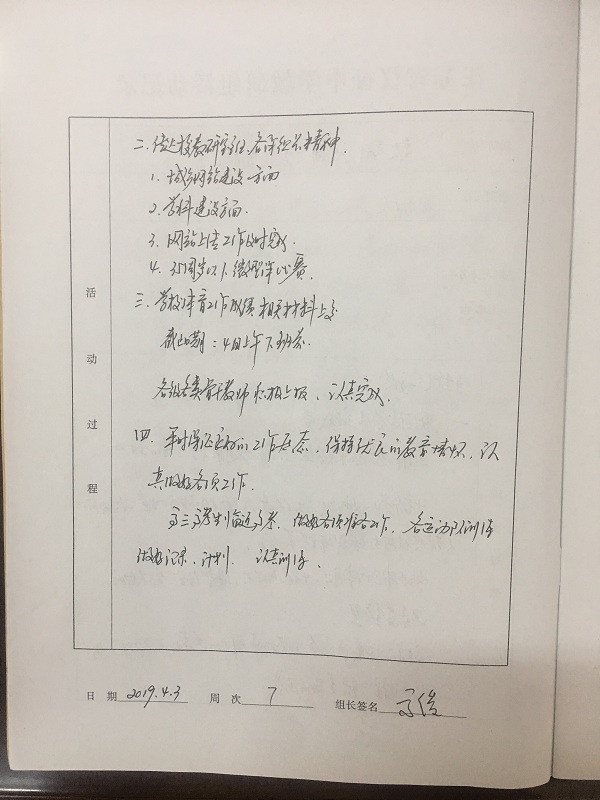 二、传达校教研室主任、备课组长精神.
1. 城乡网站建设方面
2. 学科建设方面.
3. 网站上传工作及时完成.
4. 35周岁以下微型课比赛.
三、学校体育工作成绩相关材料上交
截止日期：4日上午下班前.
各组各类骨干教师积极上报、认真完成.
四、平时保证良好的工作状态，保持优良的教育情怀，认
真做好各项工作.
高三学生临近高考，做好各项准备工作，各运动队训练
做好记录、计划. 认真训练.
活动过程
日 期 2019.4.3 周 次 7 组长签名